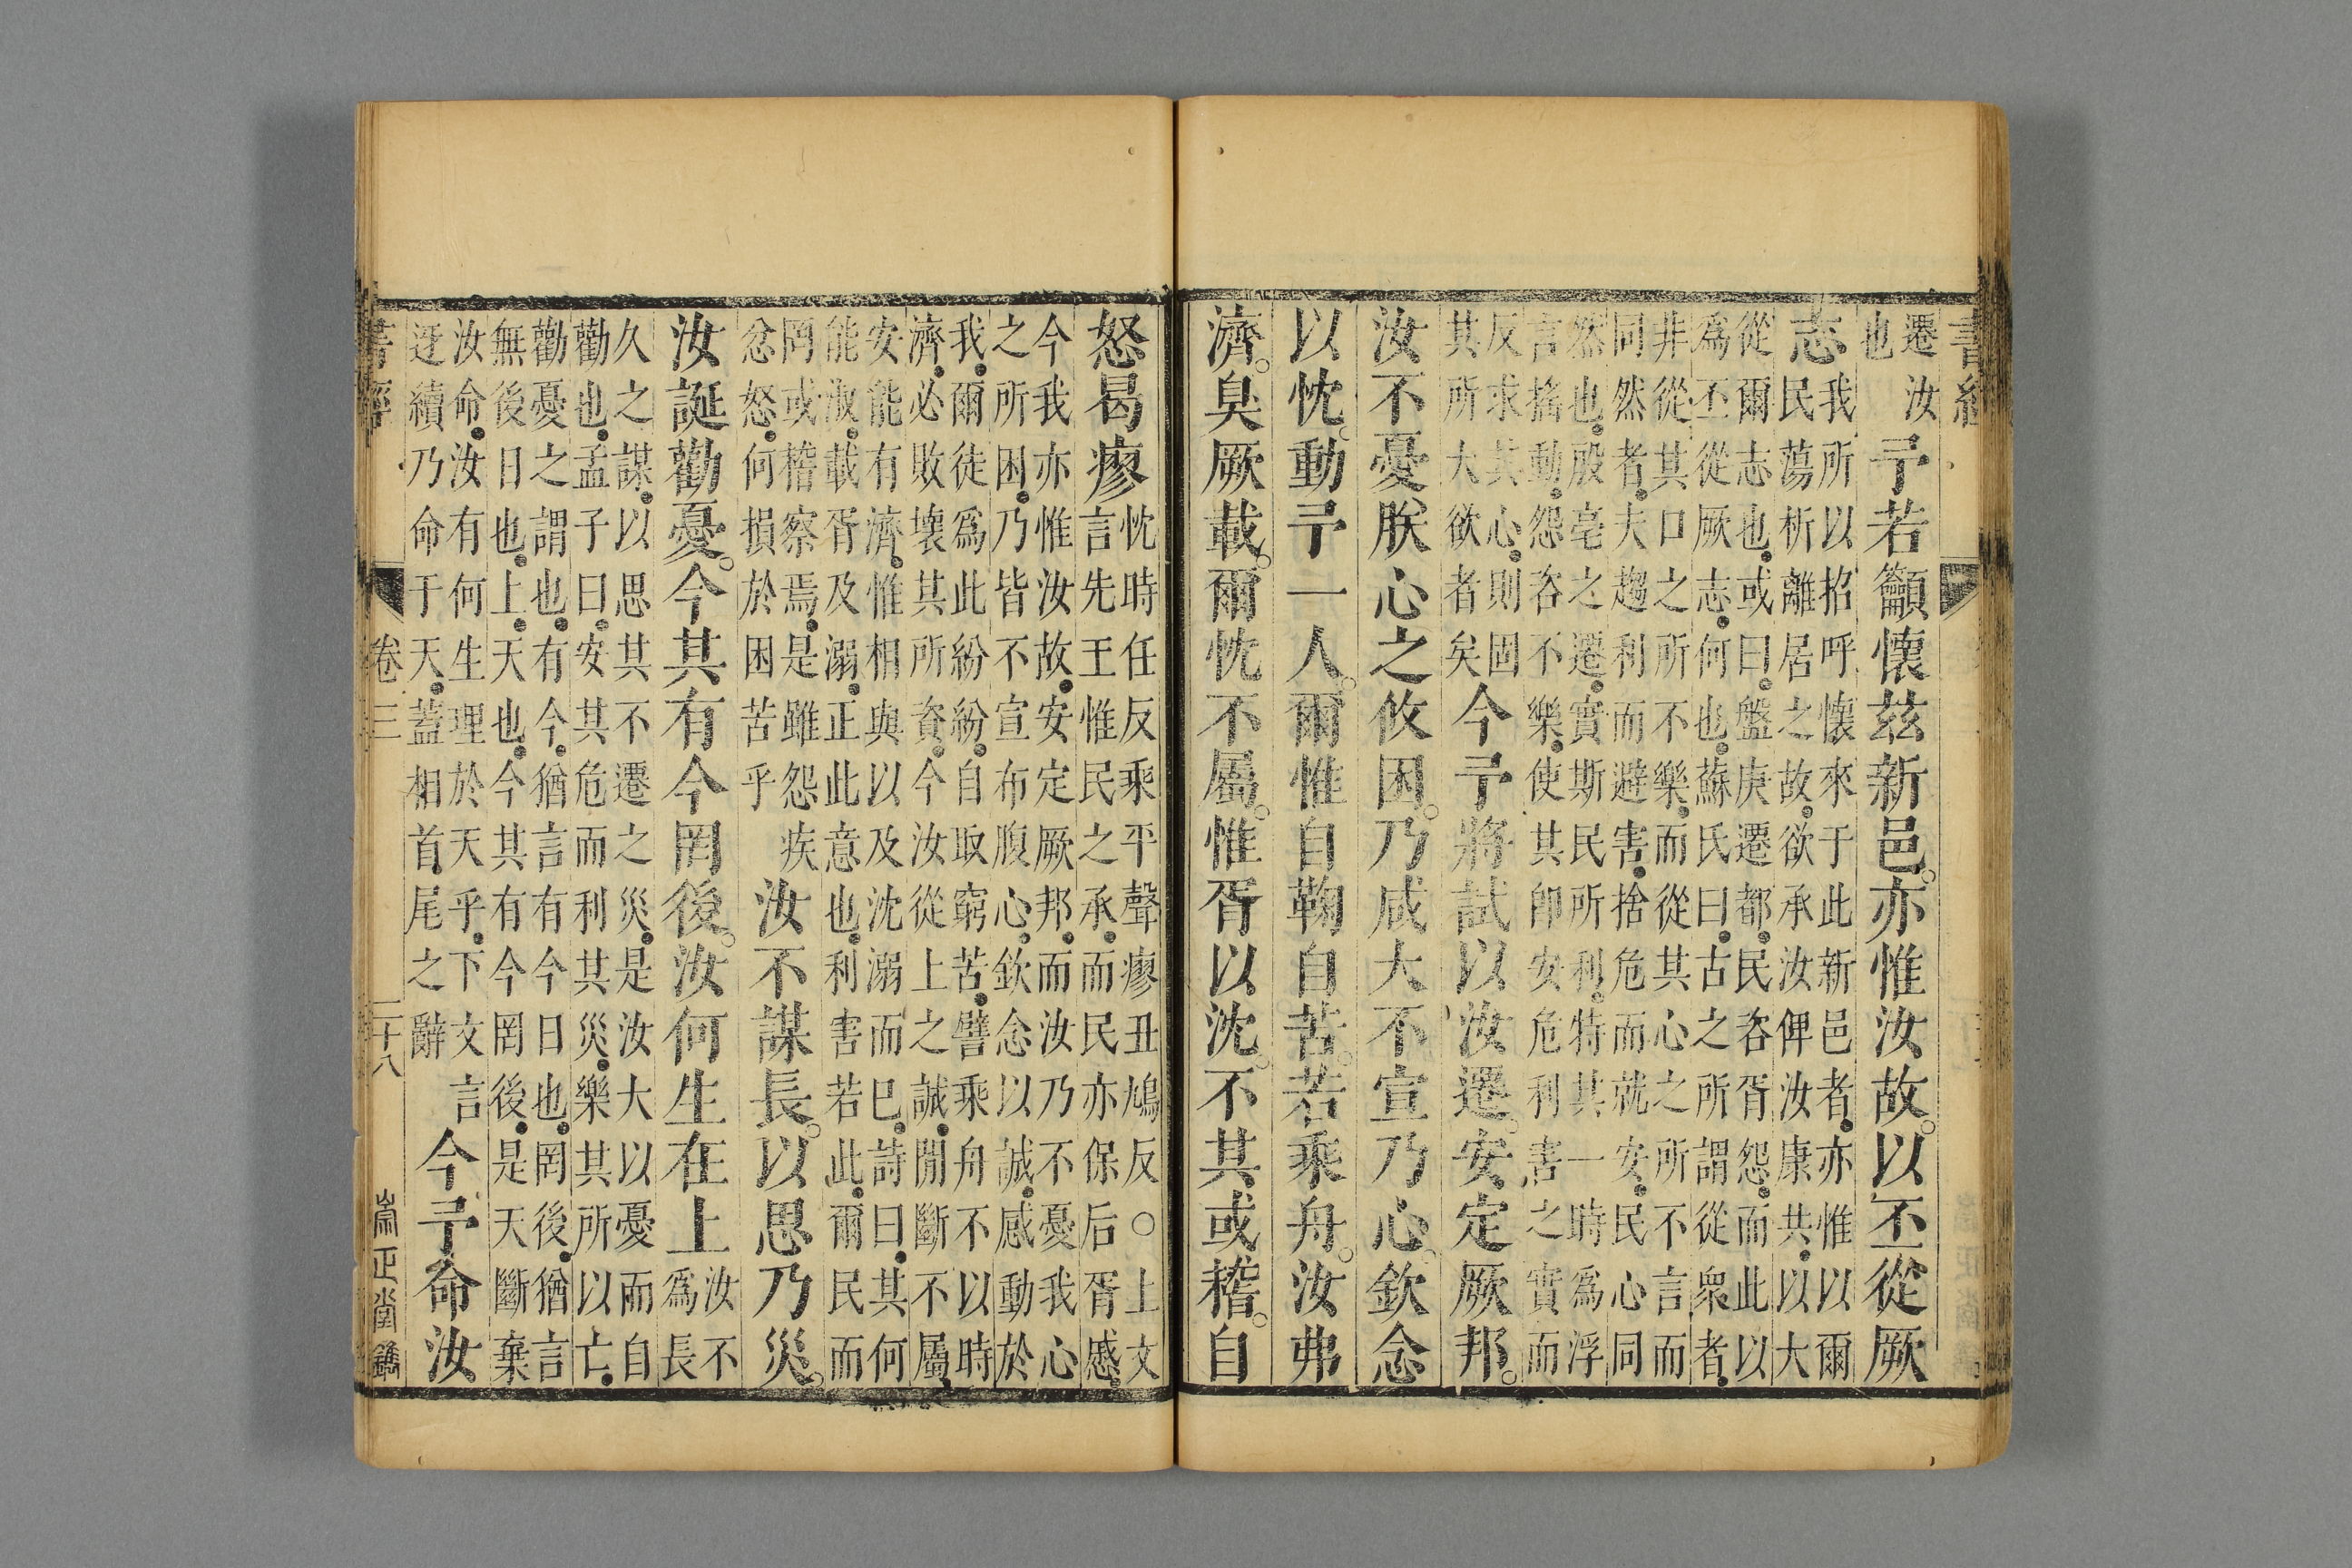 書經
遷汝
也
予若籲懷茲新邑。亦惟汝故。以丕從厥
志
我所以招呼懷來于此新邑者亦惟以爾
民蕩析離居之故欲承汝俾汝康共以大
從爾志也或曰盤庚遷都民咨胥怨而此以
爲丕從厥志何也蘇氏曰古之所謂從衆者
非從其口之所不樂而從其心之所不言而
同然者夫趨利而避害捨危而就安民心同
然也殷亳之遷實斯民所利特其一時爲浮
言搖動怨咨不樂使其卽安危利害之實而
反求其心則固
其所大欲者矣
今予將試以汝遷。安定厥邦。
汝不憂朕心之攸困。乃咸大不宣乃心。欽念
以忱。動予一人。爾惟自鞠自苦。若乘舟。汝弗
濟。臭厥載。爾忱不屬。惟胥以沈。不其或稽。自
怒曷瘳
忱時任反乘平聲瘳丑鳩反○上文
言先王惟民之承而民亦保后胥慼
今我亦惟汝故安定厥邦而汝乃不憂我心
之所困乃皆不宣布腹心欽念以誠感動於
我爾徒爲此紛紛自取窮苦譬乘舟不以時
濟必敗壞其所資今汝從上之誠閒斷不屬
安能有濟惟相與以及沈溺而已詩曰其何
能淑載胥及溺正此意也利害若此爾民而
罔或稽察焉是雖怨疾
忿怒何損於困苦乎
汝不謀長。以思乃災。
汝誕勸憂。今其有今罔後。汝何生在上
汝不
爲長
久之謀以思其不遷之災是汝大以憂而自
勸也孟子曰安其危而利其災樂其所以亡
勸憂之謂也有今猶言有今日也罔後猶言
無後日也上天也今其有今罔後是天斷棄
汝命汝有何生理於天乎下文言
迓續乃命于天蓋相首尾之辭
今予命汝
書經 卷三 二十八 崇正堂鐫